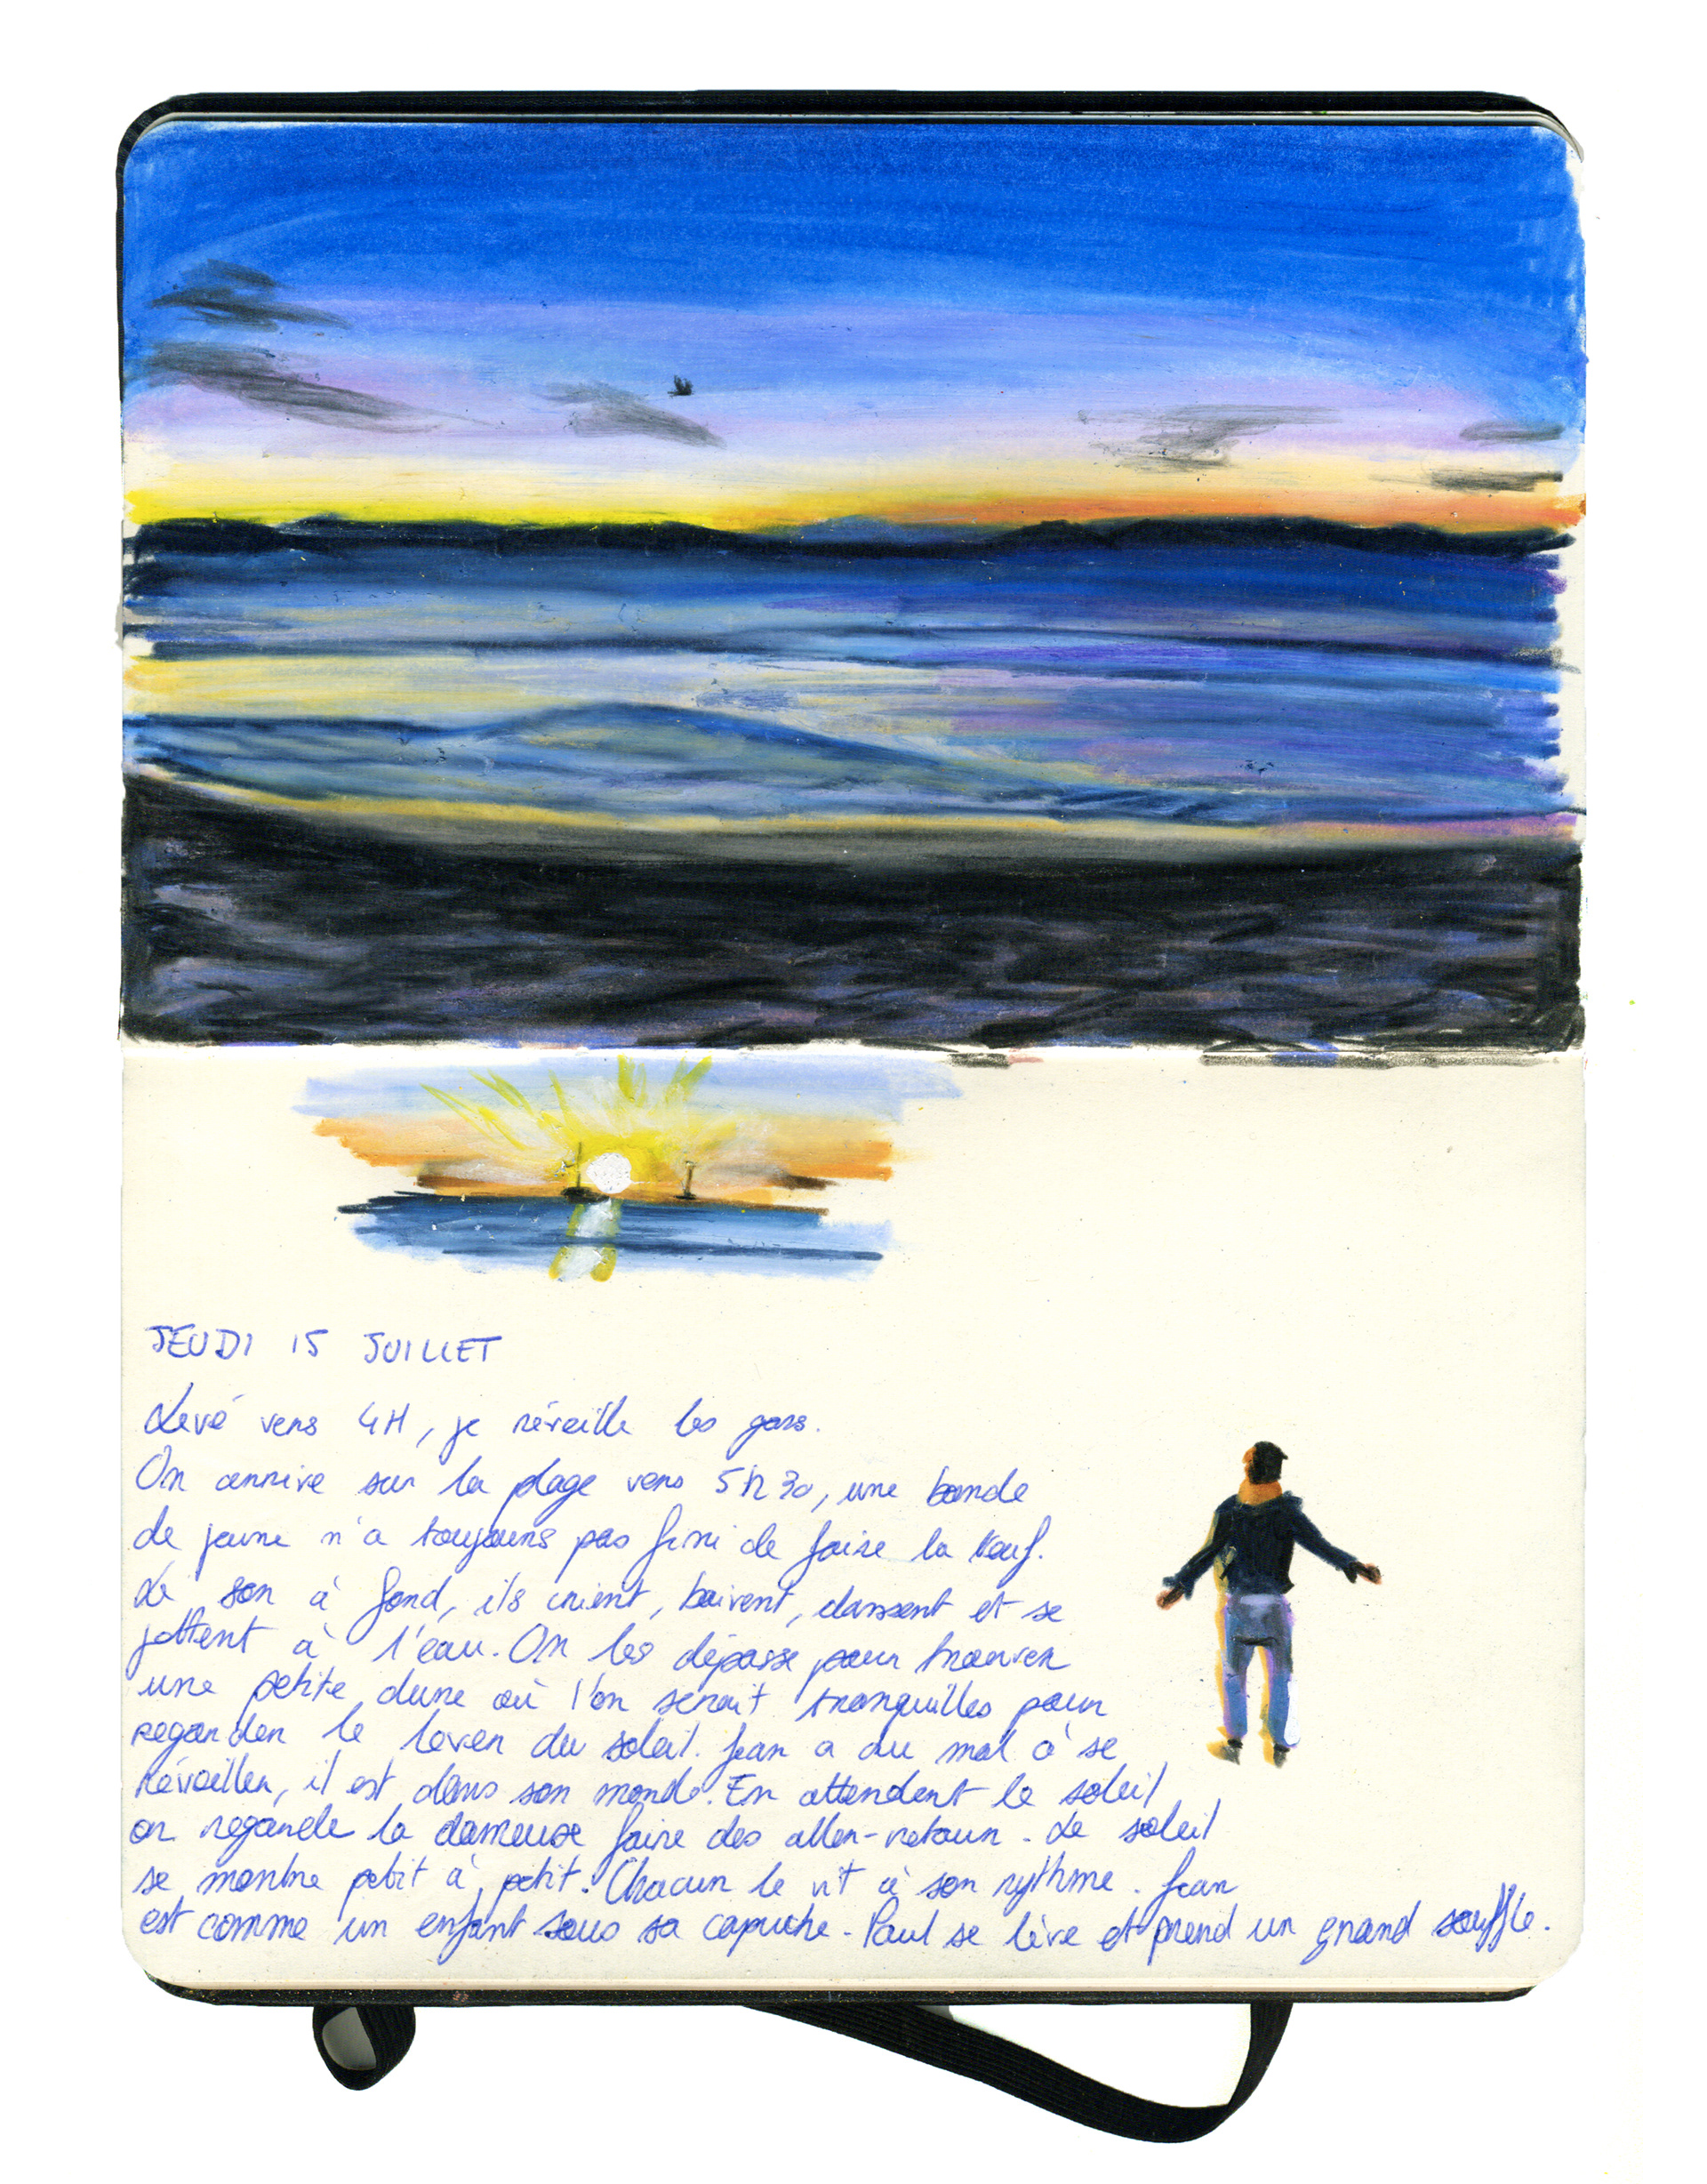 JEUDI 15 JUILLET
Levé vers 4H, je réveille les gars.
On arrive sur la plage vers 5h30, une bande
de jeune n'a toujours pas fini de faire la teuf.
Le son à fond, ils crient, boivent, dansent et se
jettent à l'eau. On les dépasse pour trouver
une petite dune où l'on serait tranquilles pour
regarder le lever du soleil. Jean a du mal à se
réveiller, il est dans son monde. En attendant le soleil
on regarde la dameuse faire des aller-retour. Le soleil
se montre petit à petit. Chacun le vit à son rythme. Jean
est comme un enfant sous sa capuche. Paul se lève et prend un grand souffle.